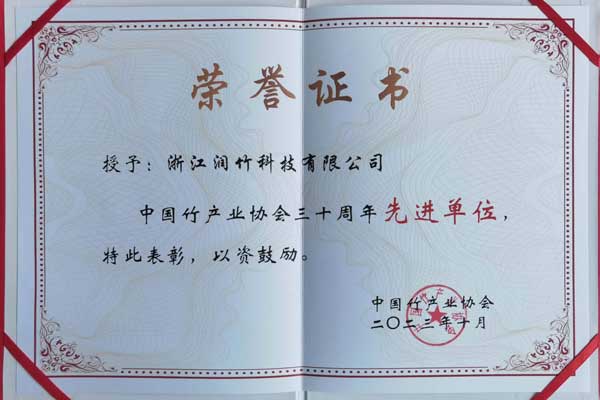 荣誉证书
授予：浙江润竹科技有限公司
中国竹产业协会三十周年先进单位，
特此表彰，以资鼓励。
中国竹产业协会
二〇二三年十月